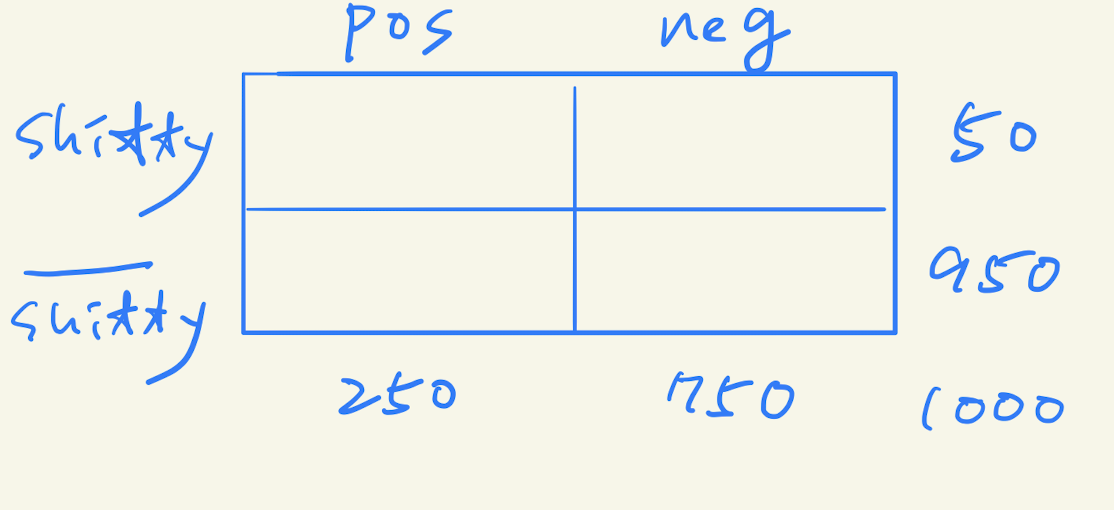 pos neg
shitty 50
shitty 950
250 750 1000